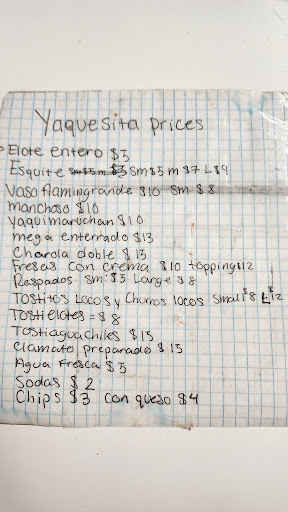 Yaquesita prices
Elote entero $3
Esquite Sm $5 m $7 L $9
Vaso flamingrande $10 sm $8
manchoso $10
yaquimaruchan $10
mega enterrado $13
Charola doble $13
Fresas con crema $10 topping $12
Raspados sm: $5 Large $8
Tostitos Locos y Churros locos Small $8 L $12
Tostielotes = $8
Tostiaguachiles $15
Clamato preparado $15
Agua Fresca $5
Sodas $2
Chips $3 con queso $4